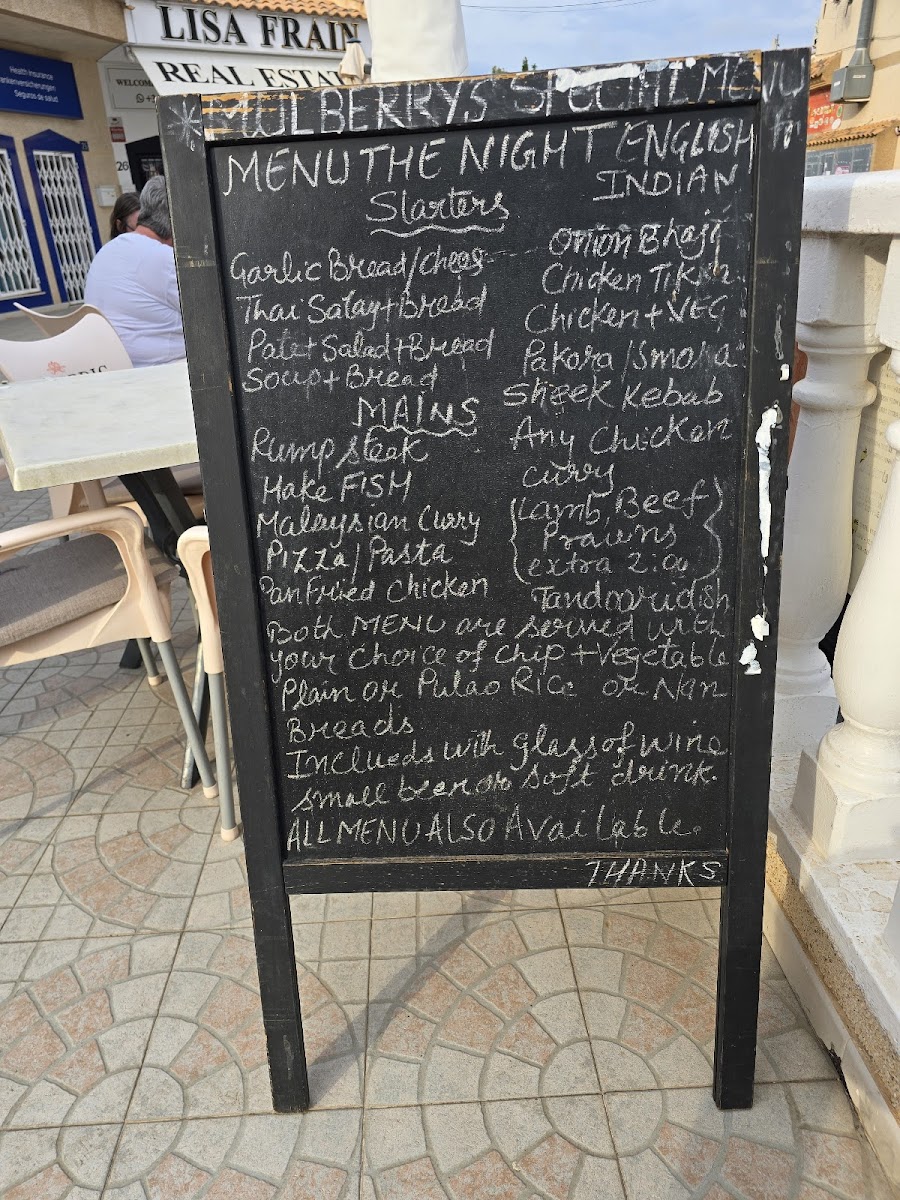 LISA FRAIN
REAL ESTATE
Health Insurance
Krankenversicherungen
Seguros de salud
WELCOM
26
*MULBERRYS SPECIAL MENU
MENU THE NIGHT ENGLISH
INDIAN
Starters
Garlic Bread/chees
Thai Satay+Bread
Pate+Salad+Bread
Soup+Bread
Onion Bhaji
Chicken Tikka
Chicken+VEG
Pakora/Smosa
Sheek Kebab
MAINS
Rump steak
Hake FISH
Malaysian Curry
Pizza/Pasta
Pan Fried Chicken
Any Chicken
curry
(Lamb, Beef
Prawns
extra 2:00)
Tandooridish
Both MENU are served with
your choice of chip +Vegetable
Plain or Pulao Rice or Nan
Breads
Inclueds with glass of wine
small beer or soft drink.
ALL MENU ALSO Available.
THANKS